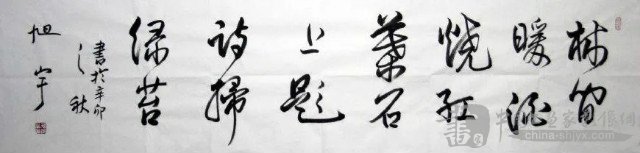 林間
暖酒
燒紅
葉石
上題
詩掃
綠苔
書於辛卯
之秋
旭宇
www.china-shjyx.com